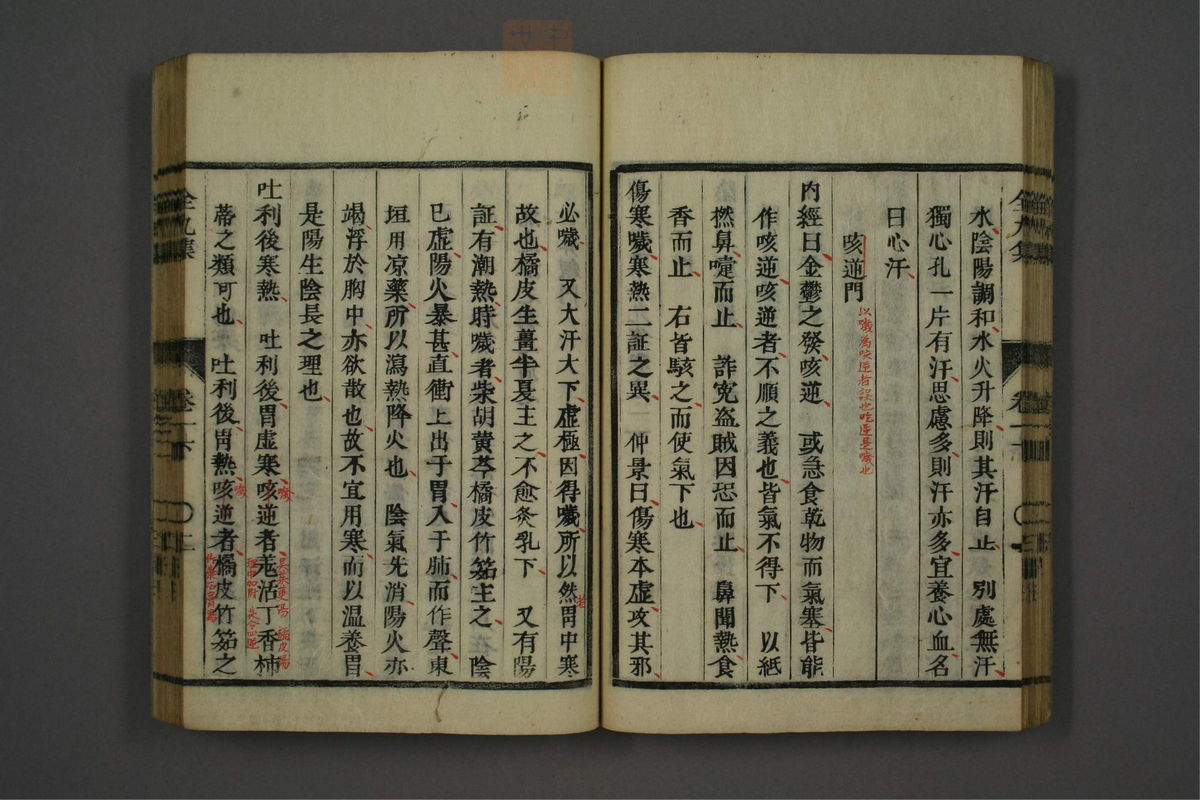 水陰陽調和水火升降則其汗自止　別處無汗
獨心孔一片有汗思慮多則汗亦多宜養心血名
曰心汗
咳逆門
以噦為咳逆者誤也咳逆是噦也
內經曰金鬱之發咳逆　或急食乾物而氣塞皆能
作咳逆咳逆者不順之義也皆氣不得下　以紙
撚鼻嚏而止　詐寃盗賊因恐而止　鼻聞熱食
香而止　右皆駭之而使氣下也
傷寒噦寒熱二証之異　仲景曰傷寒本虛攻其邪
必噦　又大汗大下虛極因得噦所以然胃中寒
故也橘皮生薑半夏主之不愈灸乳下　又有陽
証有潮熱時噦者柴胡黄芩橘皮竹筎主之　陰
已虛陽火暴甚直衝上出于胃入于肺而作聲東
垣用凉藥所以瀉熱降火也　陰氣先消陽火亦
竭浮於胸中亦欲散也故不宜用寒而以温養胃
是陽生陰長之理也
吐利後寒熱　吐利後胃虛寒咳逆者羗活丁香柿
蒂之類可也　吐利後胃熱咳逆者橘皮竹筎之
噦
噦
全九集
卷一下
全九集
卷一下